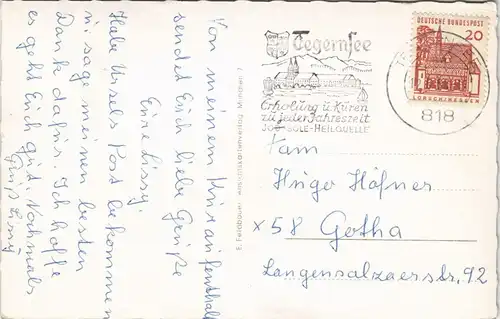 Von meinem Kuraufenthalt
sendet Euch liebe Grüße
Eure Lissy.
Habe Ursels Post bekommen
sage meinen besten
Dank dafür. Ich hoffe
es geht Euch gut. Nochmals
Gruß Lissy
E. Felsbauer, Ansichtskartenverlag, München 7
Tegernsee
Erholung u. Kuren
zu jeder Jahreszeit
JOD-SOLE-HEILQUELLE
818
DEUTSCHE BUNDESPOST
20
LORSCH/HESSEN
Fam
Hugo Häfner
x 58 Gotha
Langensalzaerstr. 92